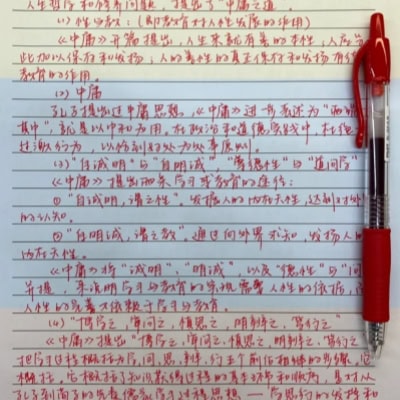 人生哲学和修养问题，提出了"中庸之道"。
(1) 性与教：(即教育对人性发展的作用)
《中庸》开篇提出，人生来就有善的本性，人应
此加以保存和发扬；人的善性的真正保存和发扬有待
教育的作用。
(2) 中庸
孔子提出过中庸思想，《中庸》进一步表述为"
其中"，就是以中和为用，在政治和道德实践中，杜绝
过激行为，以恰到好处为处事原则。
(3) "自诚明"与"自明诚"，"尊德性"与"道问学"
《中庸》提出两条学习或教育的途径：
①"自诚明，谓之性"。发掘人的内在天性，达到对外
的认知。
②"自明诚，谓之教"，通过向外界求知，发扬人的
内在天性。
《中庸》将"诚明"、"明诚"，以及"德性"与"问
并提，来说明学习与教育的实现需要人性的依据，
人性的完善亦依赖于学习与教育。
(4) "博学之，审问之，慎思之，明辨之，笃行之"
《中庸》提出"博学之，审问之，慎思之，明辨之，笃行之"
把学习过程概括为学、问、思、辨、行五个前后相继的步骤，它
概括，它概括了知识获得过程的基本环节和顺序，是对从
孔子到荀子的先秦儒家学习过程思想——学思行的发挥和